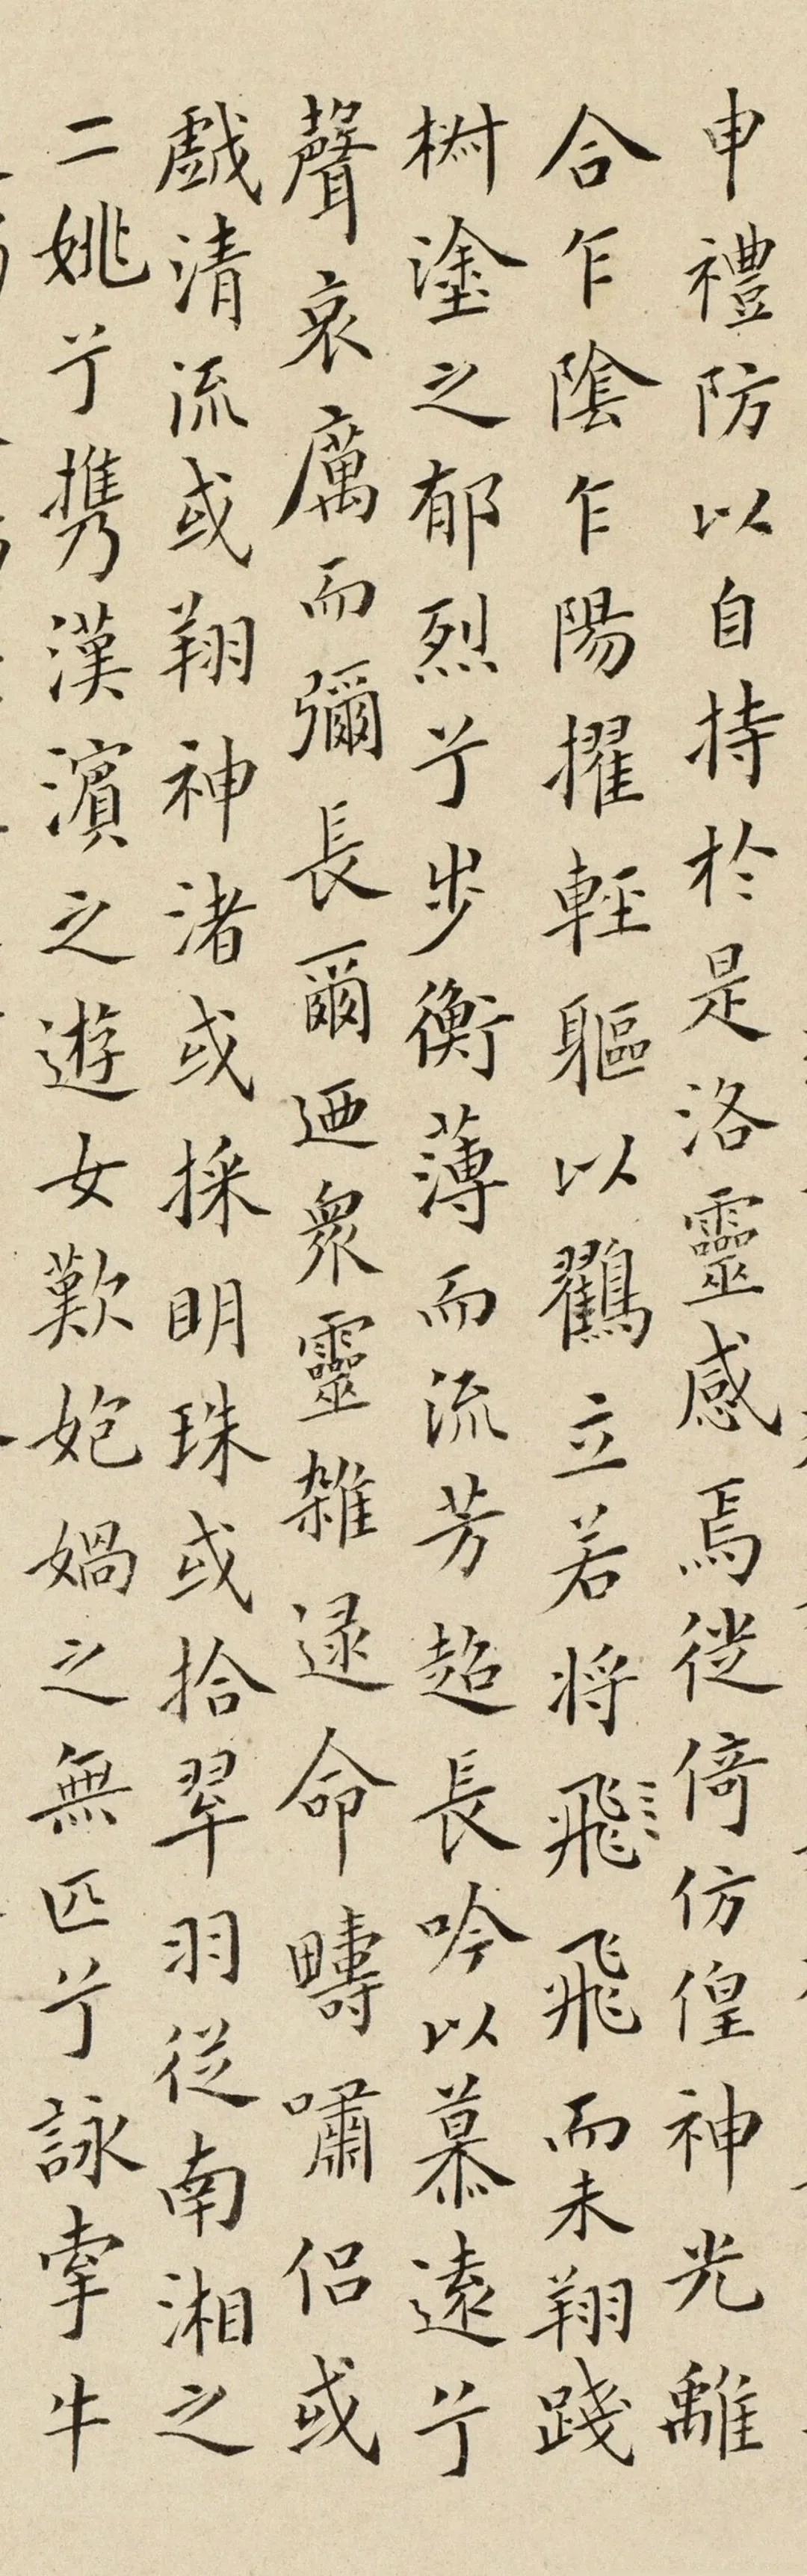 申禮防以自持於是洛靈感焉徙倚仿偟神光離
合乍陰乍陽擢輕軀以鸛立若將飛飛而未翔踐
樹塗之郁烈兮步衡薄而流芳超長吟以慕遠兮
聲哀厲而彌長爾迺衆靈雜逯命疇嘯侶或
戲清流或翔神渚或採明珠或拾翠羽從南湘之
二姚兮攜漢濱之遊女歎匏媧之無匹兮詠牽牛